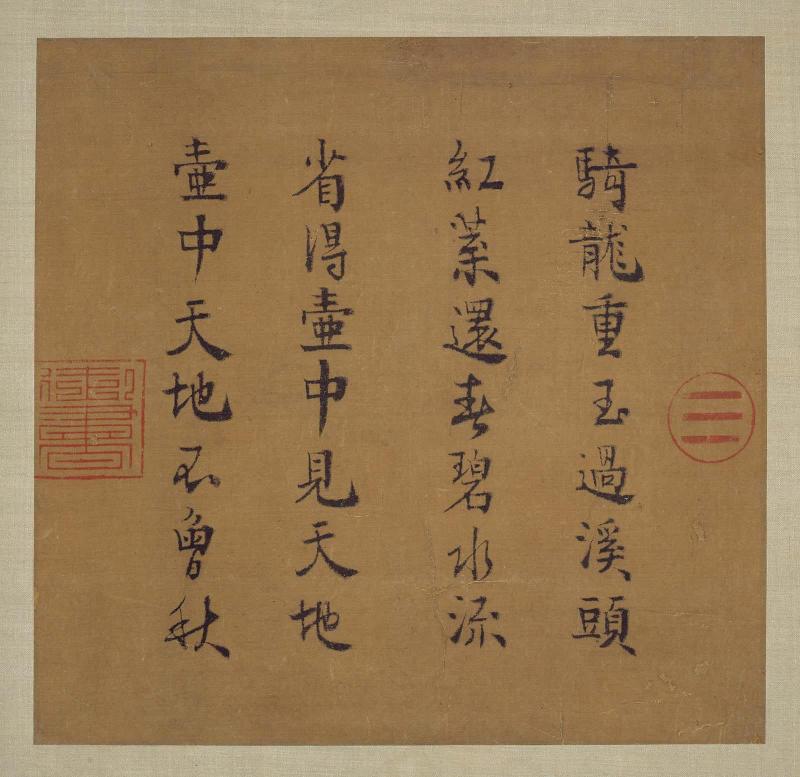 ☰
騎龍重玉過溪頭
紅葉還春碧水流
省得壺中見天地
壺中天地不曾秋
御書